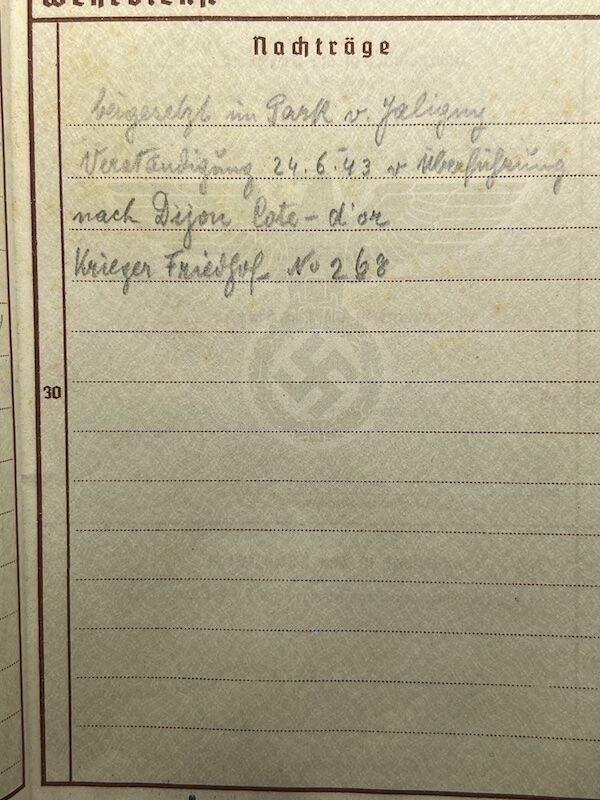 Wehrdienst
Nachträge
beigesetzt im Park v. Jaligny
Verständigung 24.6.43 v Überführung
nach Dijon Cote-d'or
Krieger Friedhof No 268
30